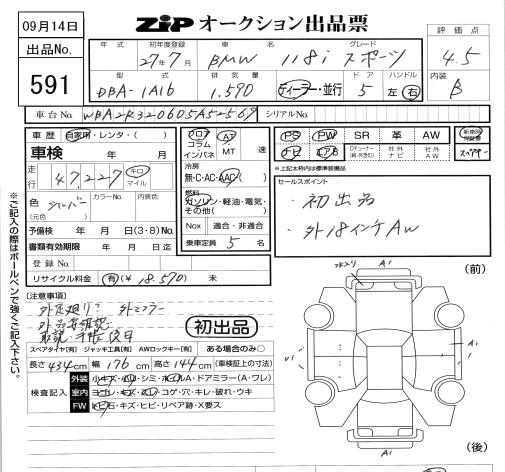 09月14日
ZIP オークション出品票
出品No.
591
年式 初年度登録 車名 グレード
27年7月 BMW 118i スポーツ
型式 排気量 ドア ハンドル
DBA-1A16 1.590 ディーラー・並行 5 左 右
評価点
4.5
内装
B
車台No. WBA2R320605A52569 シリアルNo.
車歴 自家用・レンタ・( )
車検 年 月
走行 47,227 キロ マイル
色 シルバー カラーNo. 内装色
(元色)
予備検 年 月 日(3・8)No.
書類有効期限 年 月 日迄
登録No.
リサイクル料金 有(¥18,570) 未
フロア コラム インパネ AT MT 速
冷房
無・C・AC・AAC
燃料
ガソリン・軽油・電気・その他( )
Nox 適合・非適合
乗車定員 5 名
PS PW SR 革 AW 新車時保証書
ナビ エアB Dチューナー(純・外含む) 社外ナビ 社外AW スペアキー
※上記太枠内は標準装備品
セールスポイント
初出品
外18インチAW
※ご記入の際はボールペンで強くご記入下さい。
[注意事項]
初出品
スペアタイヤ[有] ジャッキ工具[有] AWロックキー[有] ある場合のみ○
長さ 434cm 幅 176cm 高さ 144cm (車検証上の寸法)
検査記入
外装 小キズ・凹・シミ・ホイルA・ドアミラー(A・ワレ)
室内 ヨゴレ・キズ・スレ・コゲ・穴・キレ・破れ・ウキ
FW 飛石・キズ・ヒビ・リペア跡・X要ス
(前)
A1
A1
A1
(後)